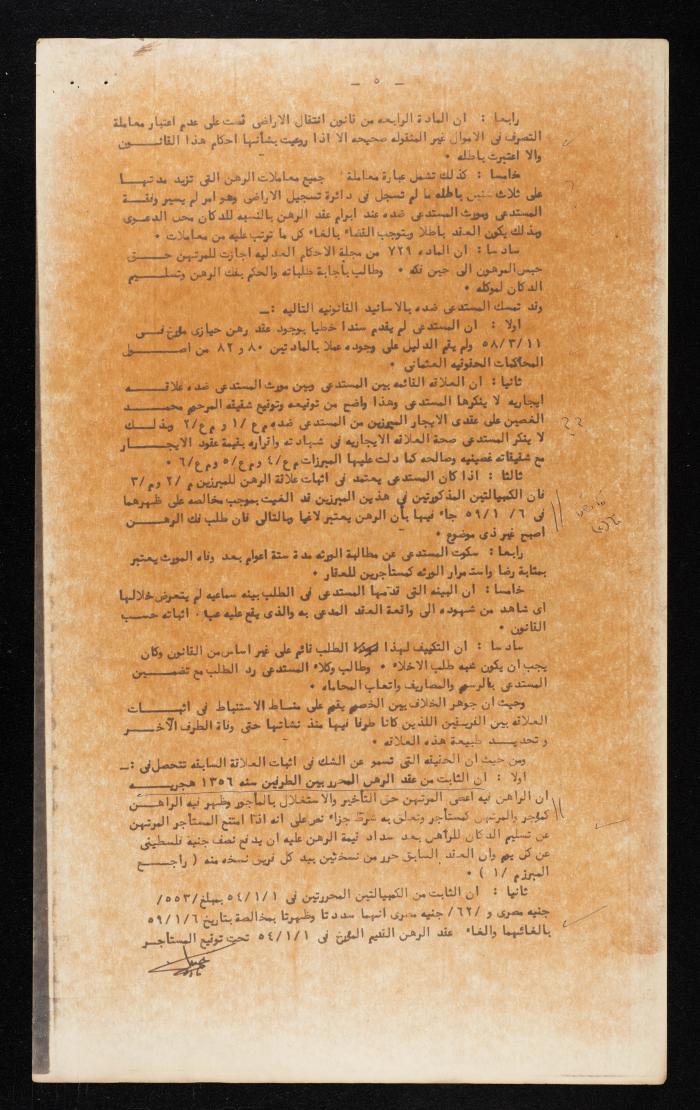 — ٥ —
رابعا : ان المادة الرابعه من قانون انتقال الاراضى نصت على عدم اعتبار معاملة
التصرف فى الاموال غير المنقوله صحيحه الا اذا روعيت بشأنها احكام هذا القانـــون
والا اعتبرت باطله •
خامسا : كذلك تشمل عبارة معاملة جميع معاملات الرهن التى تزيد مدتهــا
على ثلاث سنين باطله ما لم تسجل فى دائرة تسجيل الاراضى وهو امر لم يصير وفقــة
المستدعى ومورث المستدعى ضده عند ابرام عقد الرهن بالنسبه للدكان محل الدعــوى
وبذلك يكون العقد باطلا ويتوجب القضاء بالغاء كل ما ترتب عليه من معاملات •
سادسا : ان الماده ٧٢٩ من مجلة الاحكام العدليه اجازت للمرتهن حـــق
حبس المرهون الى حين فكه • وطالب بأجابة طلباته والحكم بفك الرهن وتسلـــيم
الدكان لموكله •
وقد تمسك المستدعى ضده بالاسانيد القانونيه التاليه :ــ
اولا : ان المستدعى لم يقدم سندا خطيا بوجود عقد رهن حيازى مؤرخ فـــى
٥٨/٣/١١ ولم يقم الدليل على وجوده عملا بالمادتين ٨٠ و ٨٢ من اصـــول
المحاكمات الحقوقيه العثمانى •
ثانيا : ان العلاقه القائمه بين المستدعى وبين مورث المستدعى ضده علاقـــه
ايجاريه لا ينكرها المستدعى وهذا واضح من توقيعه وتوقيع شقيقه المرحيم محمــد
الغصين على عقدى الايجار المبرزين من المستدعى ضده م ع /١ و م ع/٢ وبذلــك
لا ينكر المستدعى صحة العلاقه الايجاريه فى شهادته واقراره بقيمة عقود الايجــار
مع شقيقاته غصينيه وصالحه كما دلت عليها المبرزات م ع/٤ وم ع/٥ وم ع/٦ •
ثالثا : اذا كان المستدعى يعتمد فى اثبات علاقة الرهن للمبرزين م /٢ وم /٣
فان الكمبيالتين المذكورتين فى هذين المبرزين قد الغيت بموجب مخالصه على ظهرهما
فى ٦/ ٥٩/١ جاء فيها بأن الرهن يعتبر لاغيا وبالتالى فان طلب فك الرهـــن
اصبح غير ذى موضوع •
رابعا : سكوت المستدعى عن مطالبة الورثه مدة ستة اعوام بعد وفاه المورث يعتبر
بمثابة رضا واستمرار الورثه كمستأجرين للعقار •
خامسا : ان البينه التى قدمها المستدعى فى الطلب بينه سماعيه لم يتعرض خلالها
اى شاهد من شهوده الى واقعة العقد المدعى به والذى يقع عليه عبء اثباته حسب
القانون •
سادسا : ان التكييف لهذا الطلب قائم على غير اساس من القانون وكان
يجب ان يكون عليه طلب الاخلاء • وطالب وكلاء المستدعى رد الطلب مع تضمـــين
المستدعى بالرسيم والمصاريف واتعاب المحاماه •
وحيث ان جوهر الخلاف بين الخصيم يقيم على مناط الاستنباط فى اثبـــات
العلاقه بين الفريقين اللذين كانا طرفا فيها منذ نشاتها حتى وفاة الطرف الآخــر
وتحديــد طبيعة هذه العلاقه •
ومن حيث ان الحقيقه التى تسمو عن الشك فى اثبات العلاقة السابقه تتحصل فى :ــ
اولا : ان الثابت من عقد الرهن المحرر بين الطرفين سنه ١٣٥٦ هجريـــه
ان الراهن فيه اعطى المرتهن حق التأخير والاستغلال بالمأجور وظهر فيه الراهـــن
كمؤجر والمرتهن كمستأجر وتعلق به شرط جزاء نص على انه اذا امتنع المستأجر المرتهن
عن تسليم الدكان للراهن بعد سداد قيمة الرهن عليه ان يدفع نصف جنيه فلسطينى
عن كل يوم وان العقد السابق حرر من نسختين بيد كل فريق نسخه منه ( راجـــع
المبرز م /١ ) •
ثانيا : ان الثابت من الكمبيالتين المحررتين فى ٥٤/١/١ بمبلغ/٥٥٣/
جنيه مصرى و /٦٢/ جنيه مصرى انهما سددتا وظهرتا بمخالصة بتاريخ ٥٩/١/٦
بالغائهما والغاء عقد الرهن القديم المؤرخ فى ٥٤/١/١ تحت توقيع المستأجــر